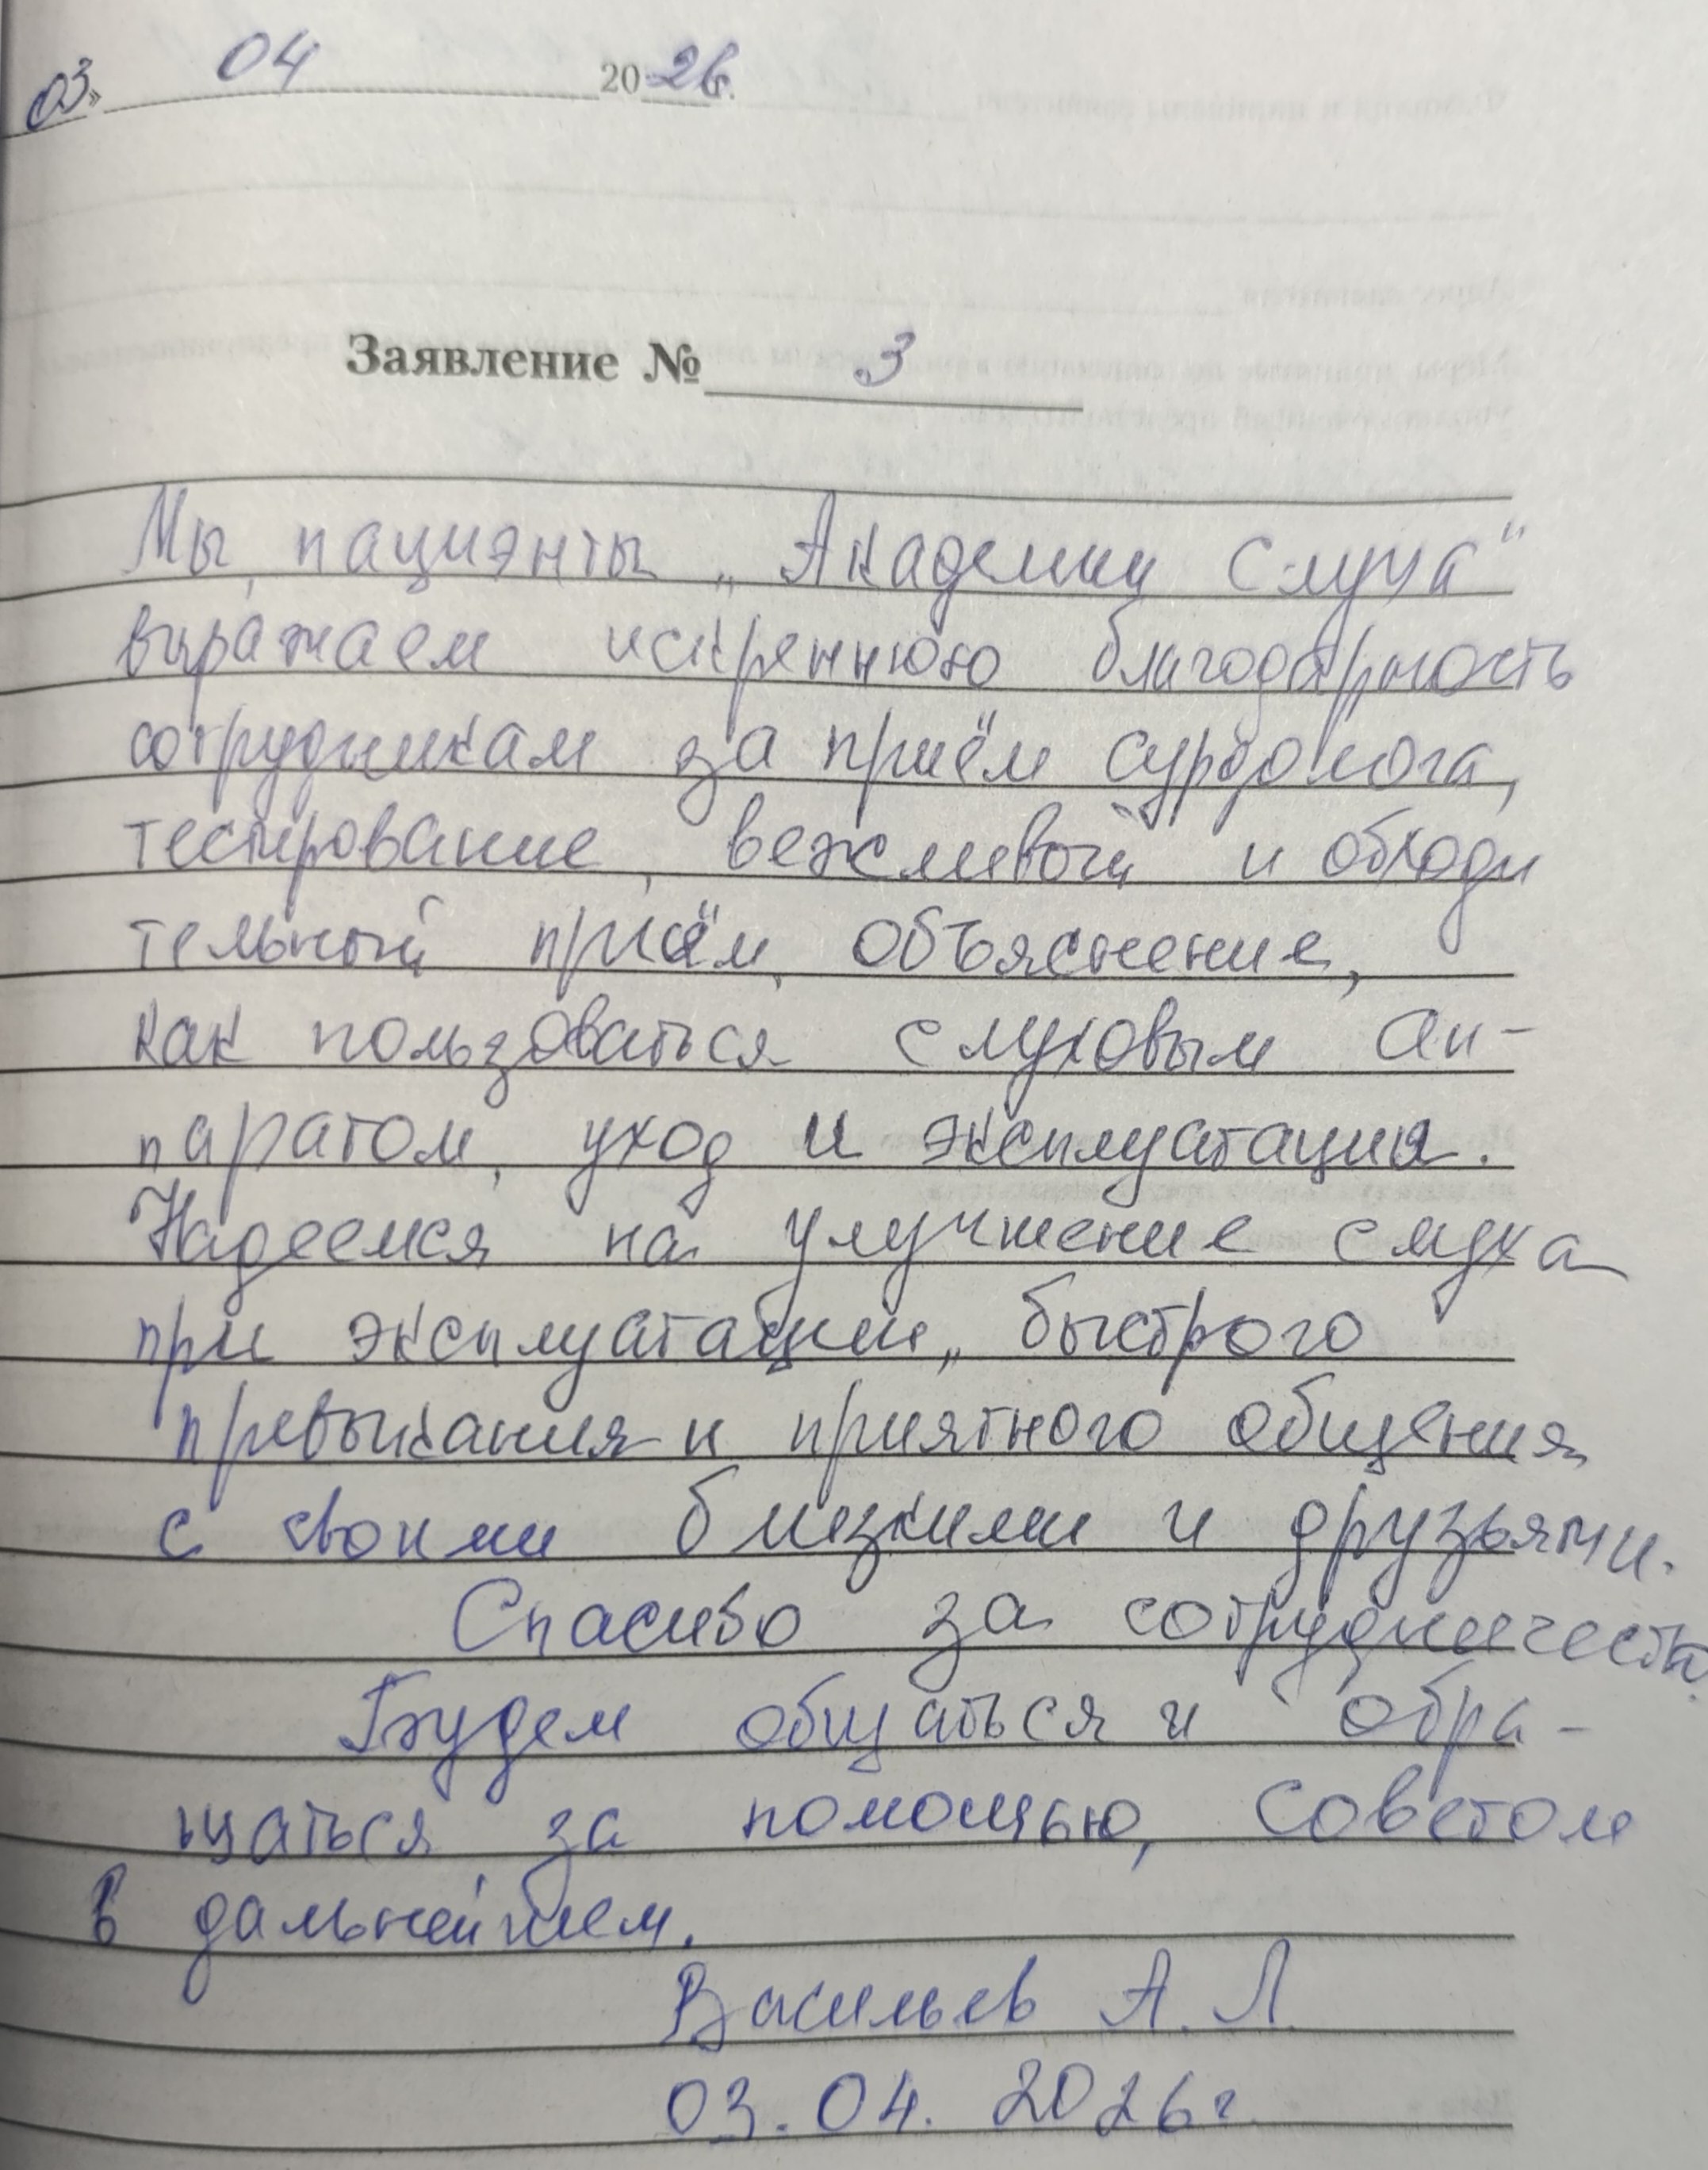 03» 04 2026г.
Заявление № 3
Мы, пациэнты „Академии Слуха"
выражаем искреннюю благодарность
сотрудникам за приём сурдолога,
тестирование, вежливый и обходи
тельный приём, объяснение,
как пользоваться слуховым ап-
паратом, уход и эксплуатация.
Надеемся на улучшение слуха
при эксплуатации,, быстрого
превыкания и приятного общения
с своими близкими и друзьями.
Спасибо за сотрудничество.
Будем общаться и обра-
щаться за помощью, советом
в дальнейшем.
Васильев А. Л.
03.04.2026г.